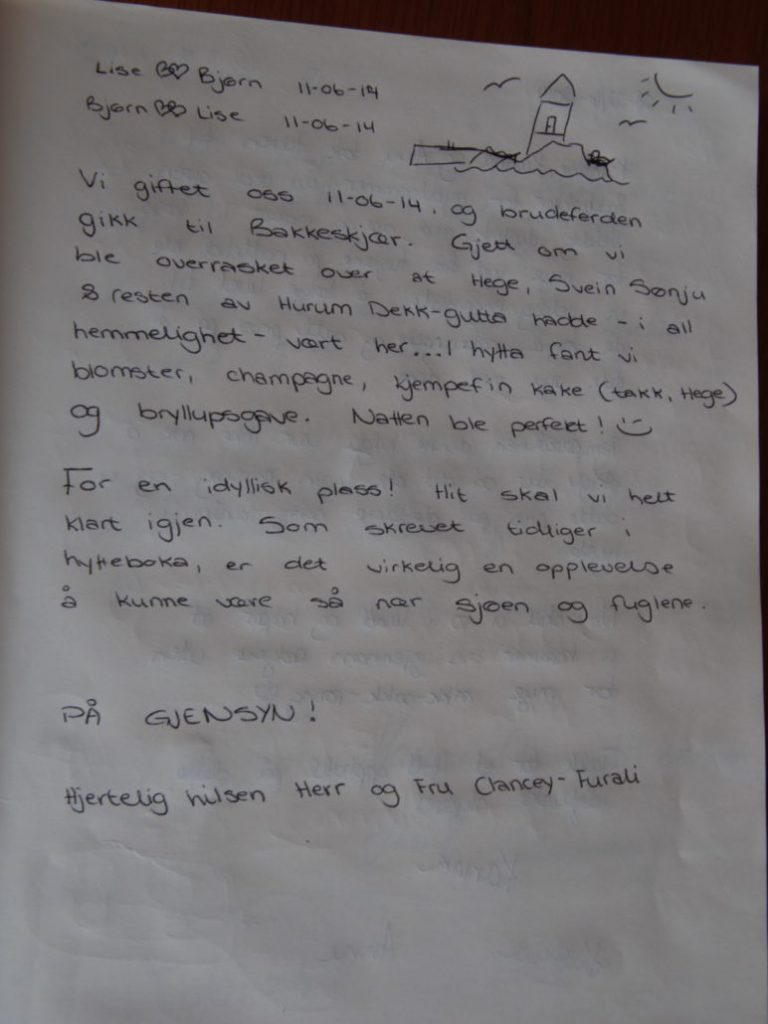 Lise ♡♡ Bjørn 11-06-14
Bjørn ♡♡ Lise 11-06-14
Vi giftet oss 11-06-14. og brudeferden
gikk til Bakkeskjær. Gjett om vi
ble overrasket over at Hege, Svein Sønju
& resten av Hurum Dekk-gutta hadde - i all
hemmelighet - vært her...I hytta fant vi
blomster, champagne, kjempefin kake (takk, Hege)
og bryllupsgave. Natten ble perfekt! :)
For en idyllisk plass! Hit skal vi helt
klart igjen. Som skrevet tidliger i
hytteboka, er det virkelig en opplevelse
å kunne være så nær sjøen og fuglene.
PÅ GJENSYN!
Hjertelig hilsen Herr og Fru Clancey-Furali